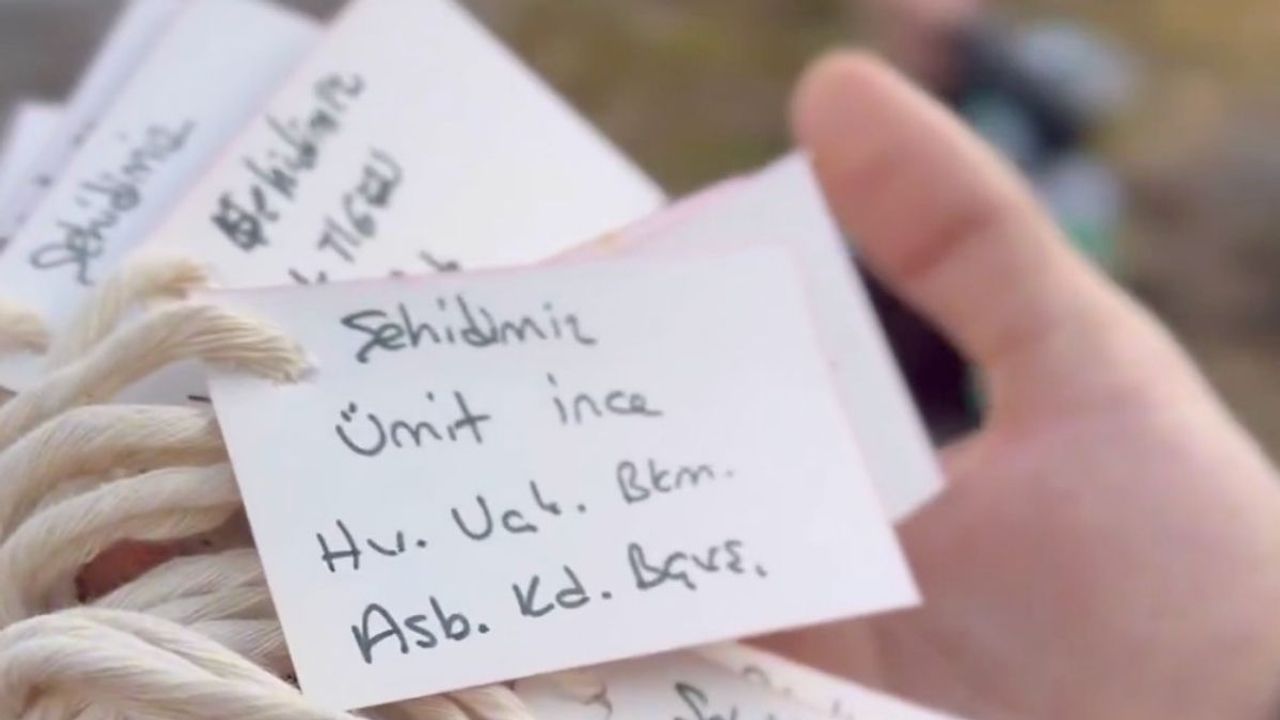 Şehidimiz
Şehidimiz
Şehidimiz
Ümit ince
Hv. Uçk. Bkm.
Asb. Kd. Bçvş.